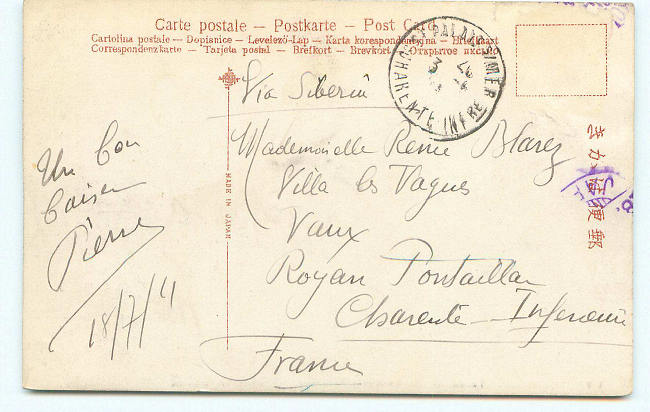 Carte postale – Postkarte – Post Card
Cartolina postale – Dopisnice – Levelező-Lap – Karta korespondencyjna – Briefkaart
Correspondenzkarte – Tarjeta postal – Brefkort – Brevkort – Открытое письмо
Via Siberia
Mademoiselle Renée Blarez
Villa les Vagues
Vaux
Royan Pontaillac
Charente-Inférieure
France
Un bon
baiser
Pierre
18/7/11
MADE IN JAPAN
CHARENTE INFRE
郵便はがき